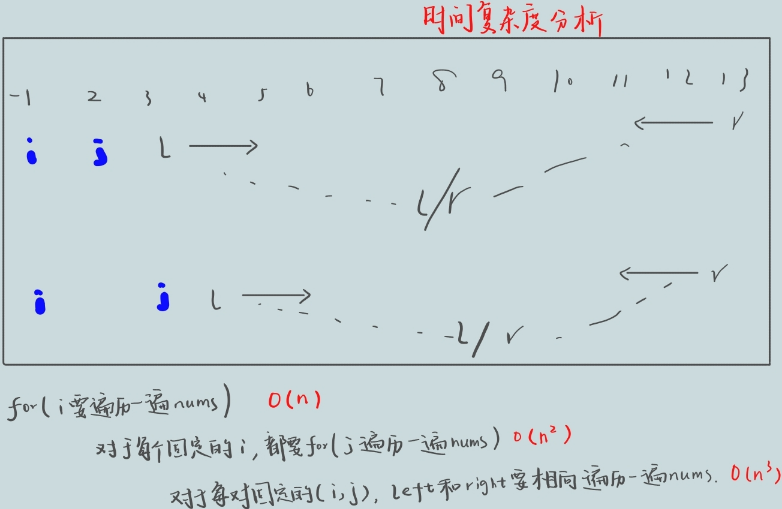 时间复杂度分析
-1 2 3 4 5 6 7 8 9 10 11 12 13
i j L r
L/r
i j L r
L/r
for(i要遍历一遍nums) O(n)
对于每个固定的i,都要for(j遍历一遍nums) O(n²)
对于每对固定的(i,j), left和right要相向遍历一遍nums. O(n³)